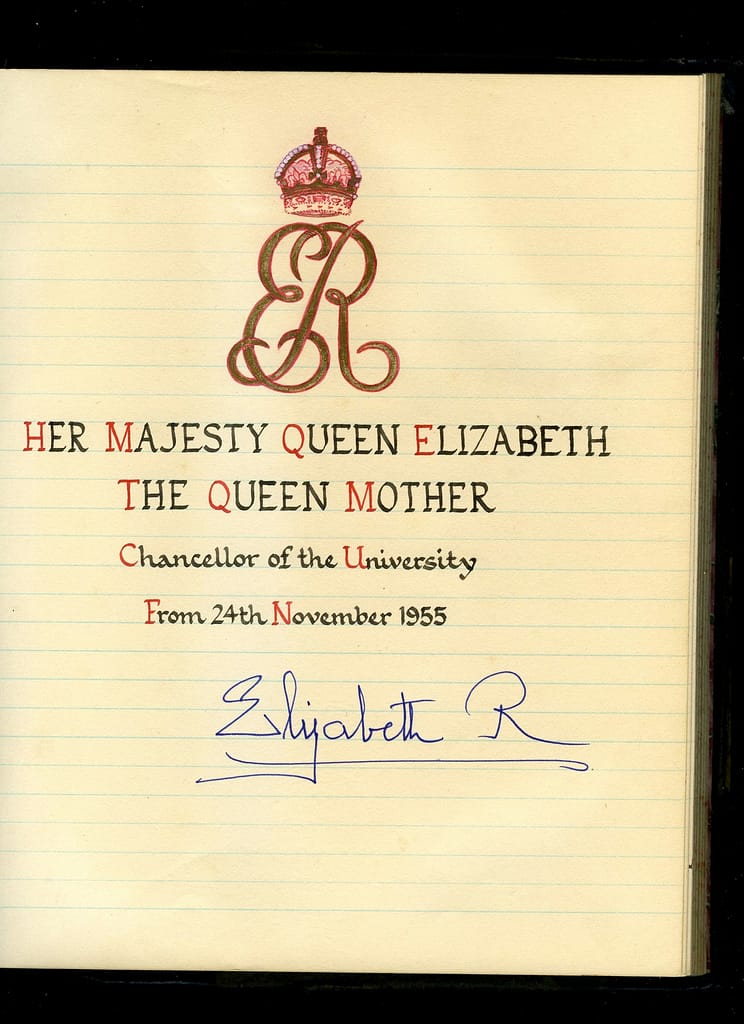 ER
HER MAJESTY QUEEN ELIZABETH
THE QUEEN MOTHER
Chancellor of the University
From 24th November 1955
Elizabeth R